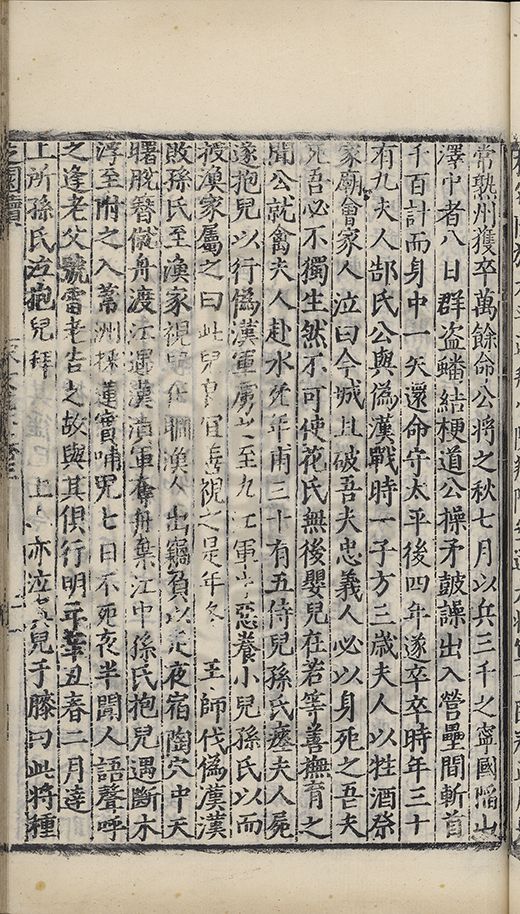 常熟州獲卒萬餘命公將之秋七月以兵三千之寧國陷山
澤中者八日群盗蟠結梗道公操矛皷譟出入營壘間斬首
千百計而身中一矢還命守太平後四年遂卒卒時年三十
有九夫人郜氏公與偽漢戰時一子方三歲夫人以牲酒祭
家廟會家人泣曰今城且破吾夫忠義人必以身死之吾夫
死吾必不獨生然不可使花氏無後嬰兒在若等善撫育之
聞公就禽夫人赴水死年甫三十有五侍兒孫氏瘞夫人屍
遂抱兒以行偽漢軍虜之至九江軍中惡養小兒孫氏以而
漁家屬之曰此兒宜善視之是年冬 王師伐偽漢漢
敗孫氏至漁家視兒在聊漁人出竊負以走夜宿陶穴中天
曙脫簪僦舟渡江遇漢潰軍奪舟棄江中孫氏抱兒遇斷木
浮至附之入葦洲採蓮實哺兒七日不死夜半聞人語聲呼
之逢老父號雷老告之故與其俱行明年辛丑春二月達
上所孫氏泣抱兒拜 上上亦泣寘兒于膝曰此將種